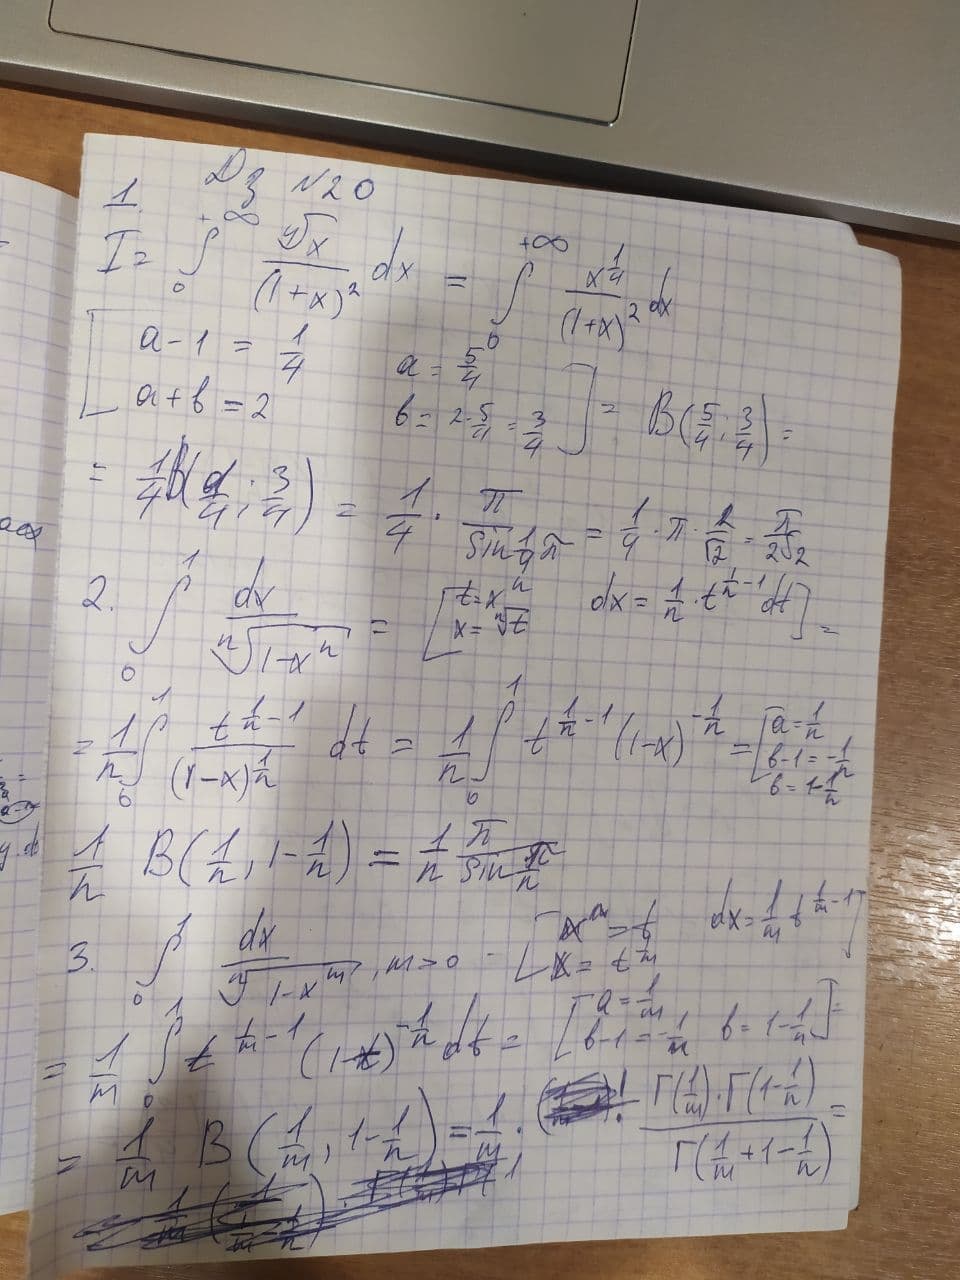 Дз №20
1.
I = ∫₀^{+∞} ⁴√x / (1+x)² dx = ∫₀^{+∞} x^{1/4} / (1+x)² dx
[ a-1 = 1/4 a = 5/4
a+b = 2 b = 2-5/4 = 3/4 ] = B(5/4; 3/4) =
= 1/4 B(1/4; 3/4) = 1/4 · π / sin 1/4 π = 1/4 · π · 2/√2 = π / 2√2
2. ∫₀¹ dx / ⁿ√(1-xⁿ) = [ t = xⁿ dx = 1/n · t^{1/n - 1} dt
x = ⁿ√t ] =
= 1/n ∫₀¹ t^{1/n - 1} / (1-x)^{1/n} dt = 1/n ∫₀¹ t^{1/n - 1} (1-x)^{-1/n} = [ a = 1/n
b-1 = -1/n
b = 1-1/n
1/n B(1/n, 1-1/n) = 1/n π / sin π/n
3. ∫₀¹ dx / ⁿ√(1-x^m) , m>0 - [ x^m = t dx = 1/m t^{1/m - 1}
x = t^{1/m} ]
= 1/m ∫₀¹ t^{1/m - 1} (1-t)^{-1/n} dt = [ a = 1/m
b-1 = -1/m b = 1-1/n ] =
= 1/m B(1/m, 1-1/n) = 1/m · Γ(1/m)·Γ(1-1/n) / Γ(1/m + 1 - 1/n) =